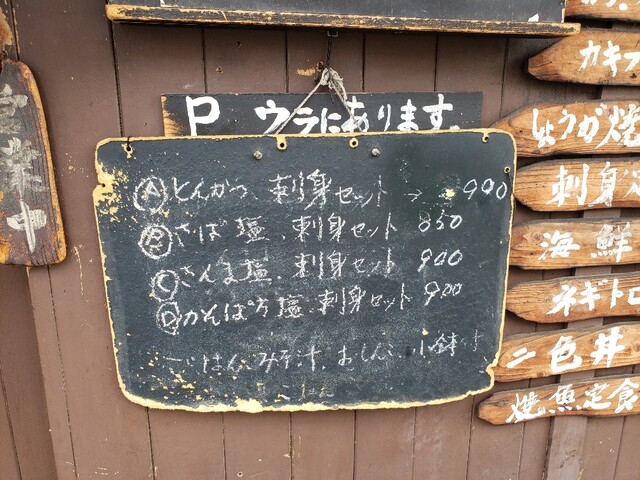 営業中
P ウラにあります。
Ⓐとんかつ、刺身セット → 990
Ⓑさば塩、刺身セット 850
Ⓒさんま塩、刺身セット 900
Ⓓかんぱち塩、刺身セット 900
ごはん、みそ汁、おしんこ、小鉢付
カキフ
しょうが焼
刺身
海鮮
ネギトロ
二色丼
焼魚定食